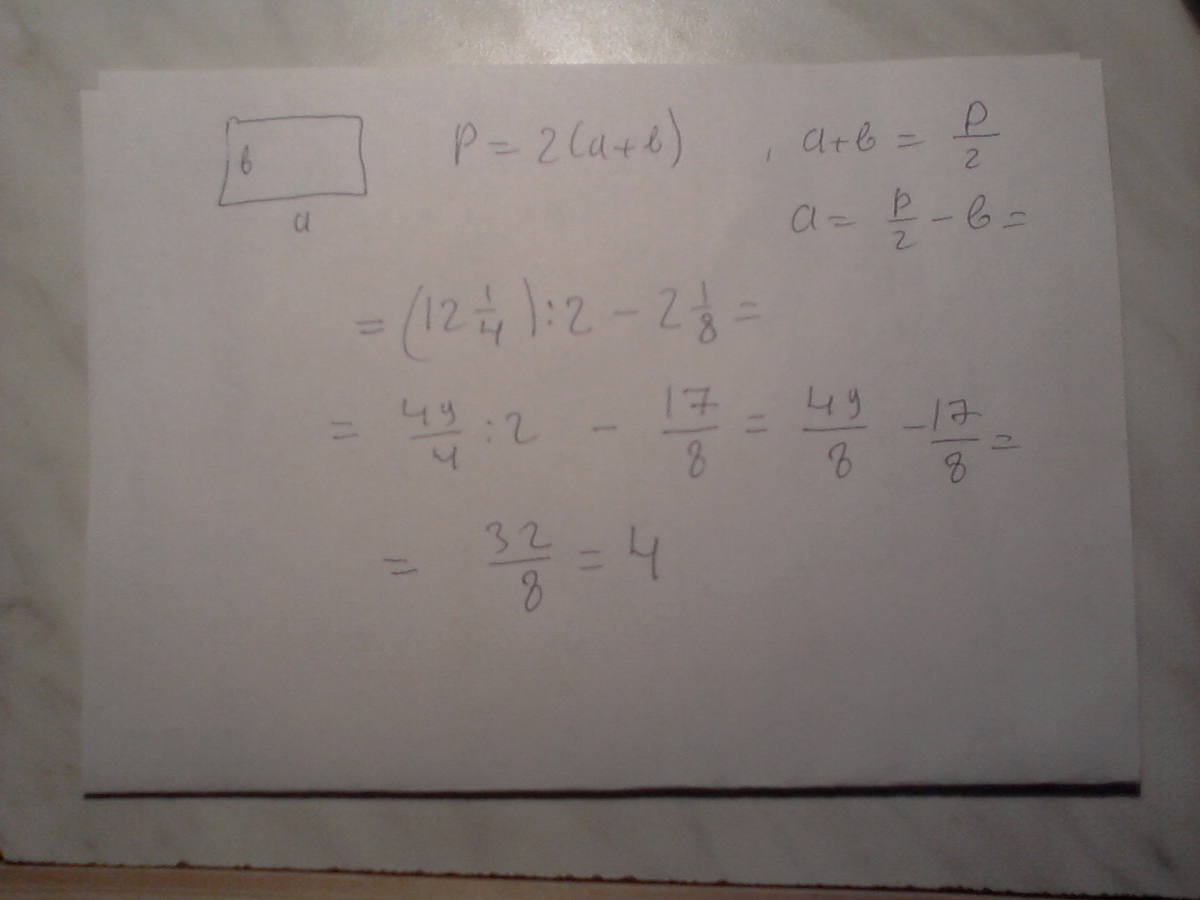 в
a
P = 2(a+в) , a+в = P/2
a = P/2 - в =
= (12 1/4) : 2 - 2 1/8 =
= 49/4 : 2 - 17/8 = 49/8 - 17/8 =
= 32/8 = 4